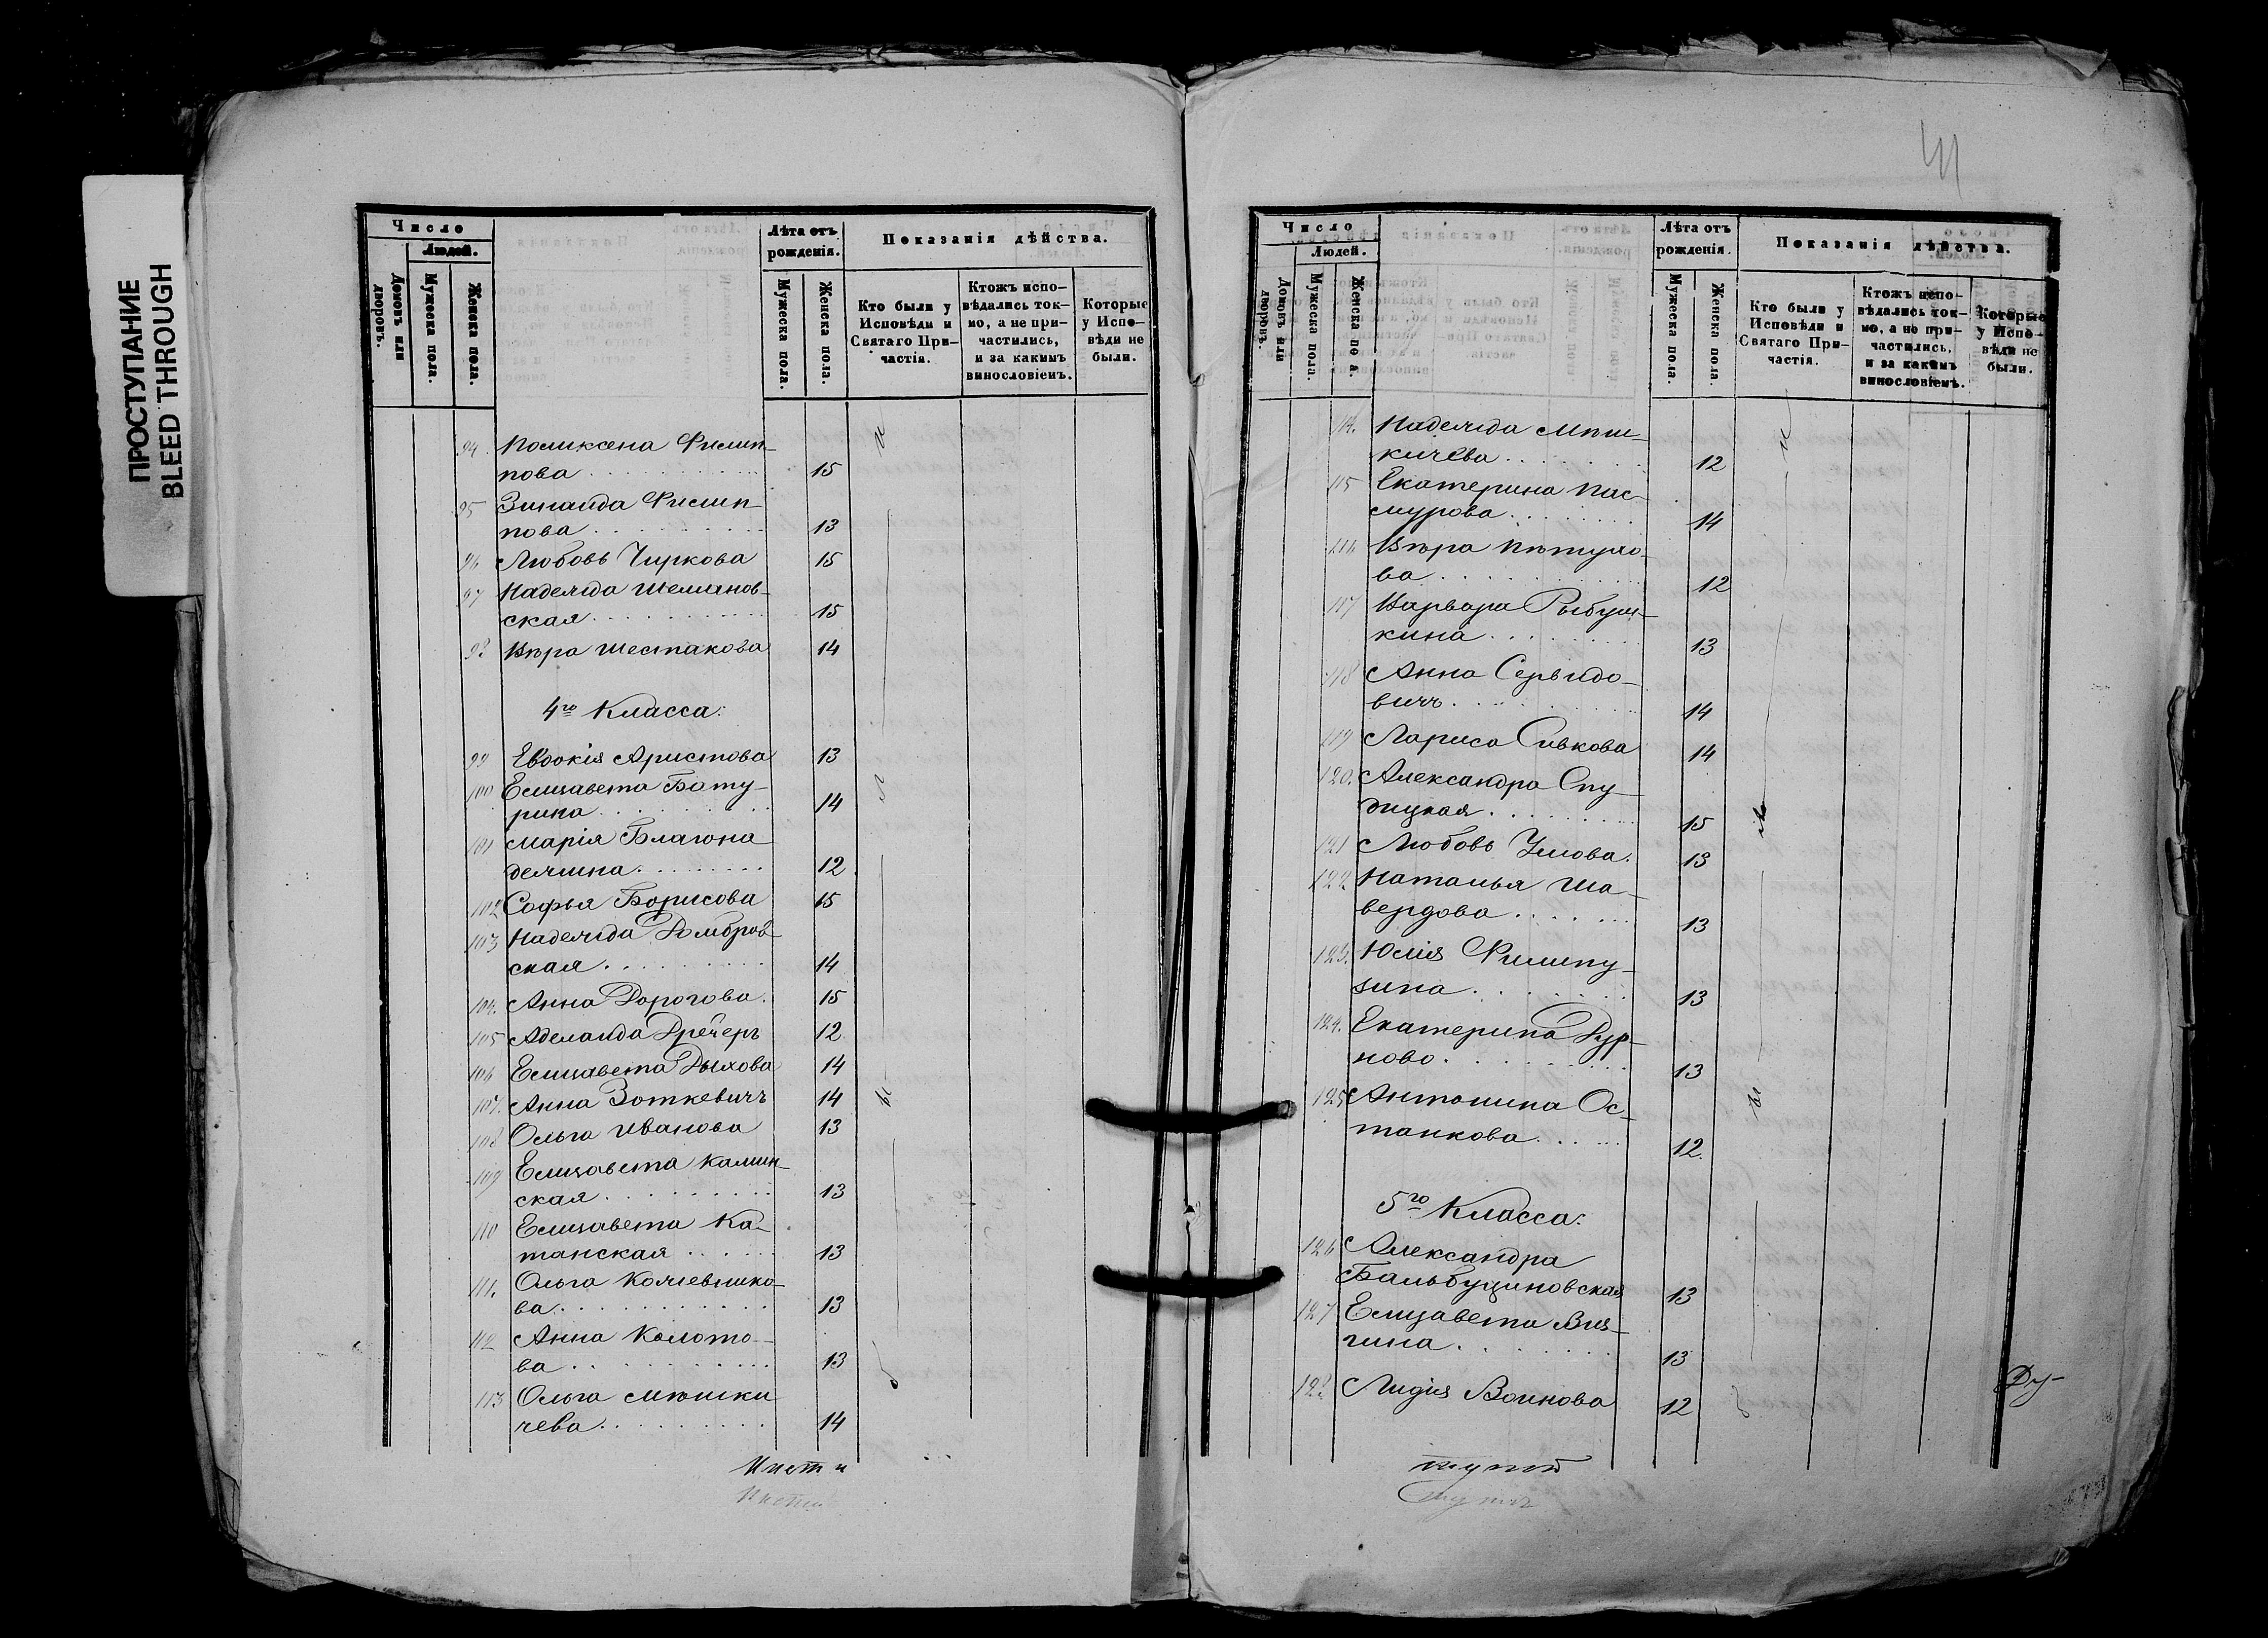 ПРОСТУПАНИЕ
BLEED THROUGH
Число
Людей.
Домовъ или дворовъ.
Мужеска пола.
Женска пола.
Лѣта отъ рожденія.
Мужеска пола.
Женска пола.
Показанія дѣйства.
Кто были у Исповѣди и Святаго Причастія.
Ктожъ исповѣдались токмо, а не причастились, и за какимъ винословіемъ.
Которые у Исповѣди не были.
94. Поликсена Филип-
пова 15
95 Зинаида Филип-
пова 13
96 Любовь Чиркова 15
97 Надежда Шеманов-
ская 15
98 Вѣра Шестакова 14
4го Класса:
99 Евдокія Аристова 13
100 Елизавета Бату-
рина 14
101 Марія Благона
дежина 12
102 Софья Борисова 15
103 Надежда Домбров-
ская 14
104. Анна Дорогова 15
105 Аделаида Дречеръ 12
106 Елизавета Дыхова 14
107. Анна Зоткевичъ 14
108 Ольга Иванова 13
109 Елизавета Калин-
ская 13
110 Елизавета Ка-
танская 13
111. Ольга Кожевнико-
ва 13
112 Анна Колото-
ва 13
113 Ольга Мюшки
чева 14
41
Число
Людей.
Домовъ или дворовъ.
Мужеска пола.
Женска пола.
Лѣта отъ рожденія.
Мужеска пола.
Женска пола.
Показанія дѣйства.
Кто были у Исповѣди и Святаго Причастія.
Ктожъ исповѣдались токмо, а не причастились, и за какимъ винословіемъ.
Которые у Исповѣди не были.
114. Надежда
кичева 12
115 Екатерина Пас-
мурова 14
116 Вѣра Пѣтухо-
ва 12
117 Варвара Рыбуш-
кина 13
118 Анна Сервидо-
вичъ 14
119 Лариса Сивкова 14
120. Александра Сту-
дицкая 15
121 Любовь Умова 13
122. Наталья Ша-
вердова 13
123. Юлія Филипу-
зина 13
124. Екатерина Дур-
ново 13
125 Антонина Ос-
танкова 12.
5го Класса:
126 Александра
Бальбуциновская 13
127 Елизавета Вяз-
гина 13
128 Лидія Воинова 12
Ду-